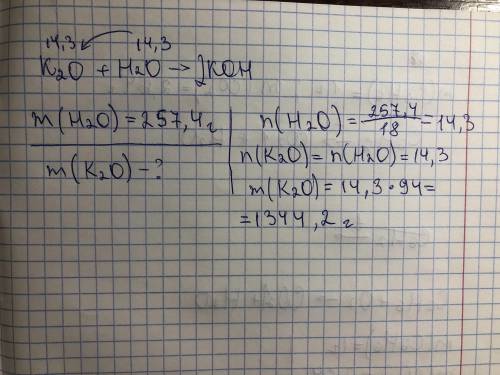 14,3 14,3
K₂O + H₂O → 2KOH
m(H₂O) = 257,4 г
m(K₂O) - ?
n(H₂O) = 257,4/18 = 14,3
n(K₂O) = n(H₂O) = 14,3
m(K₂O) = 14,3 · 94 =
= 1344,2 г